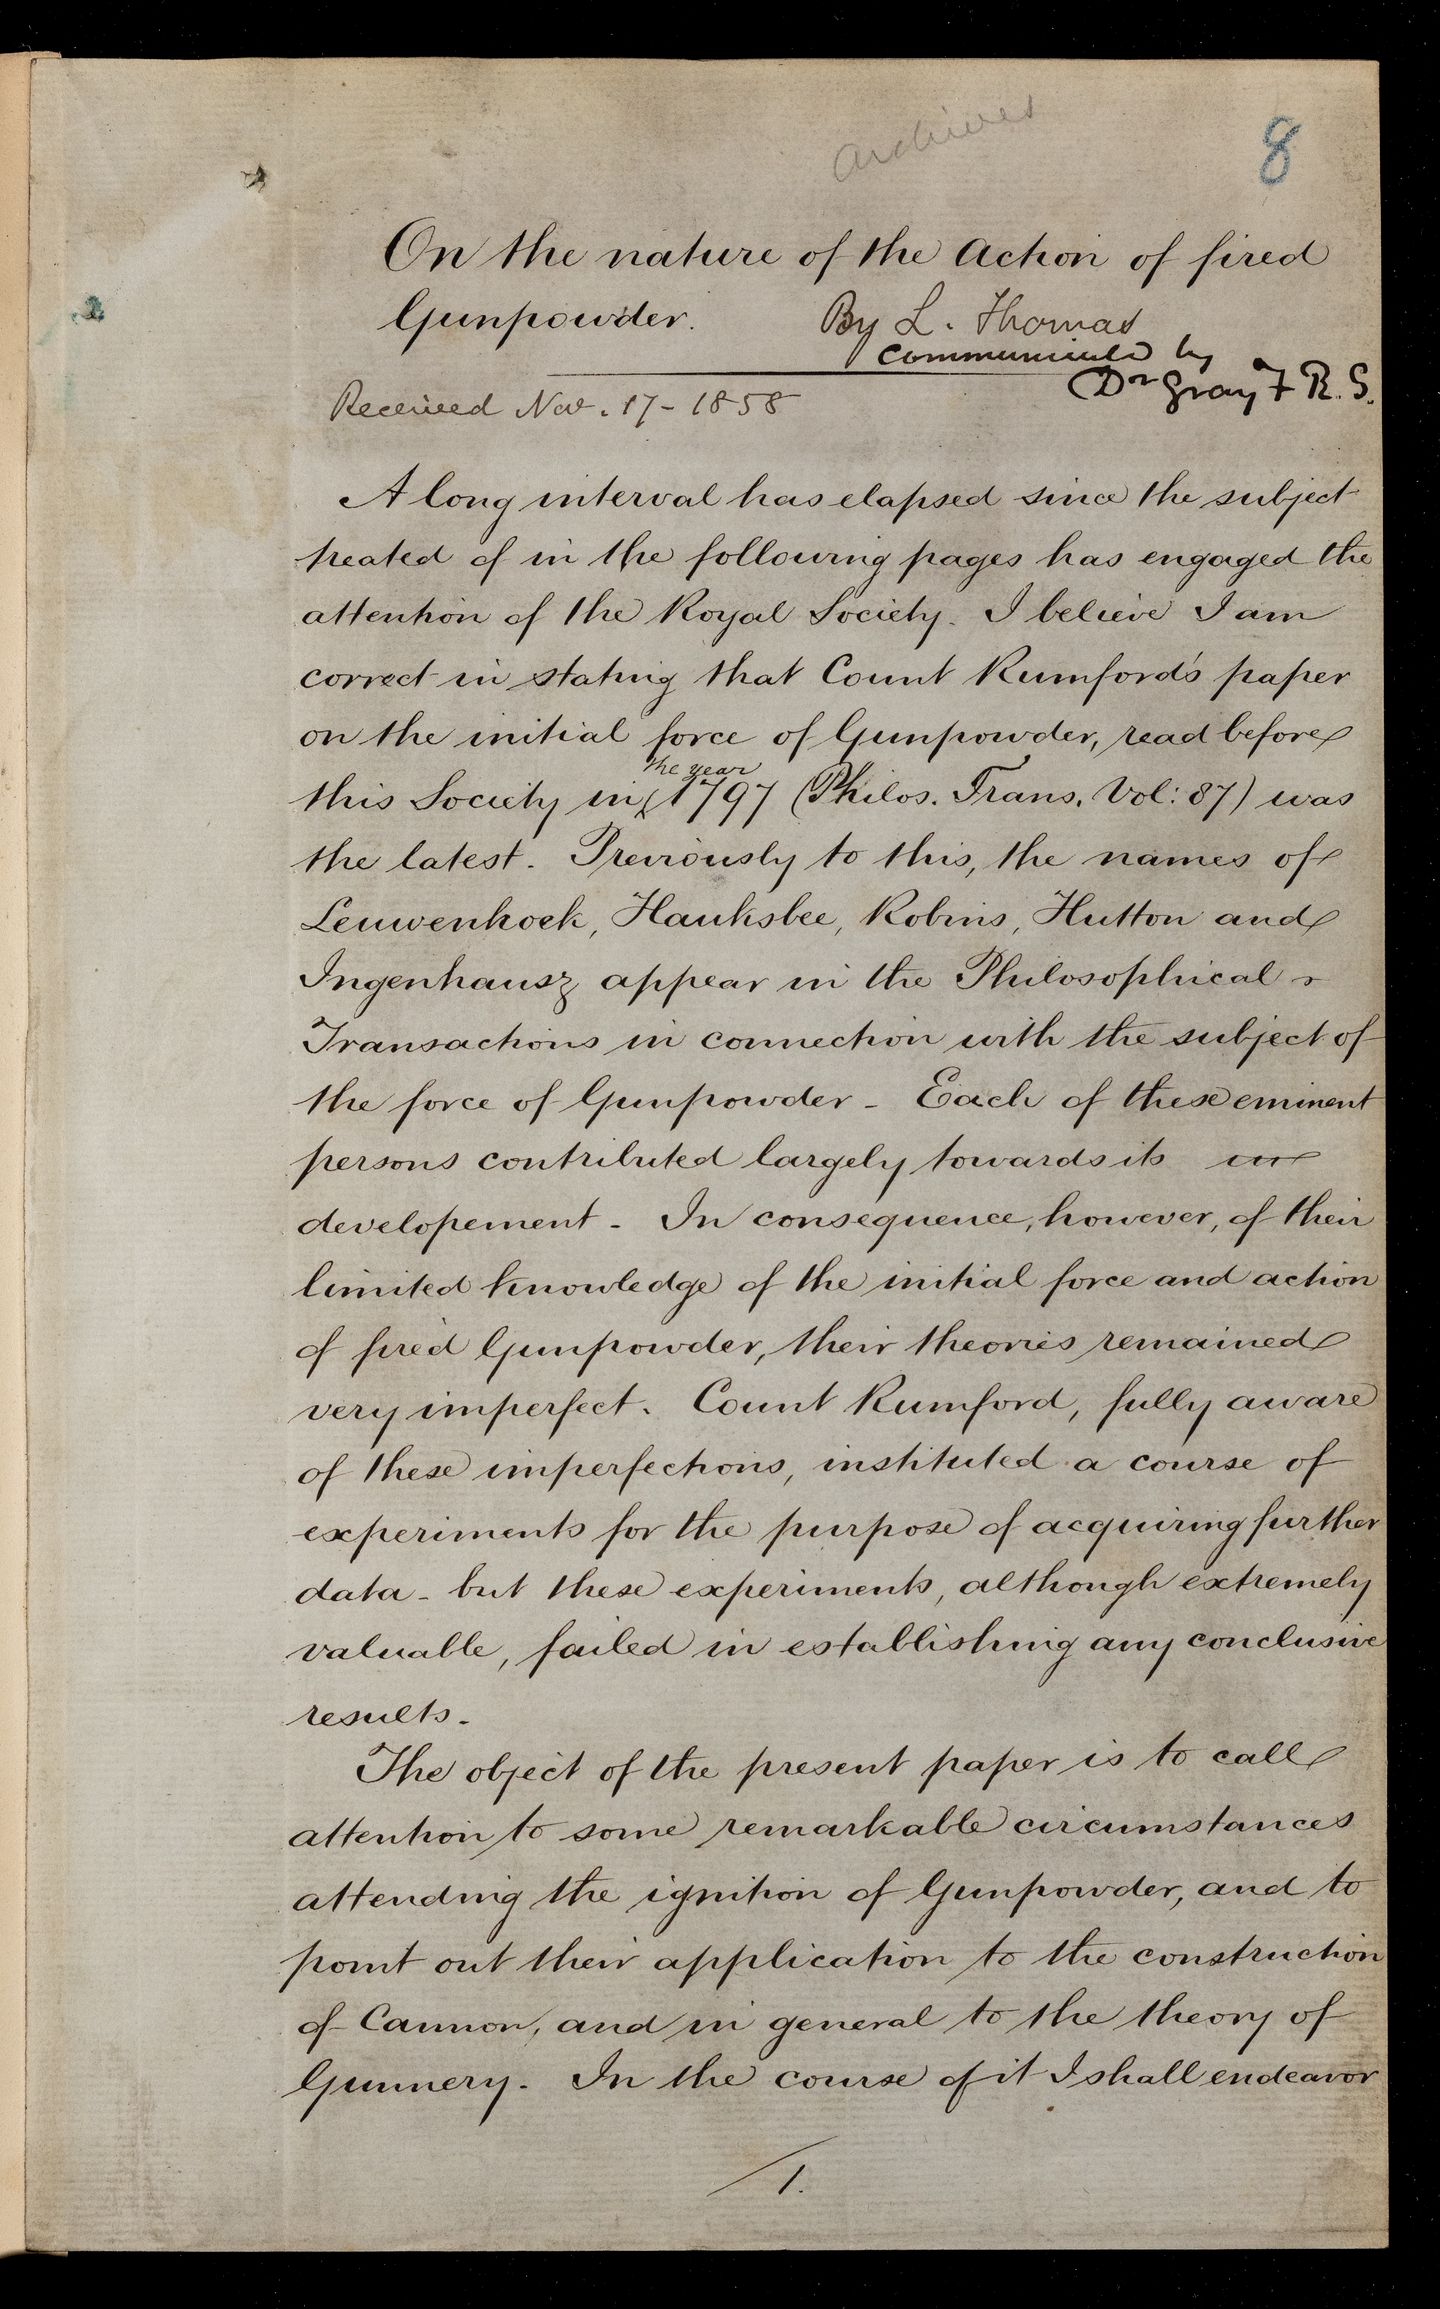 Archives
8
On the nature of the Action of fired
Gunpowder. By L. Thomas
communicated by
Dr Gray F R. S.
Received Nov. 17 - 1858
A long interval has elapsed since the subject
treated of in the following pages has engaged the
attention of the Royal Society. I believe I am
correct in stating that Count Rumford's paper
on the initial force of Gunpowder, read before
the year
this Society in 1797 (Philos. Trans. Vol: 87) was
the latest. Previously to this, the names of
Leuwenhoek, Hauksbee, Robins, Hutton and
Ingenhausz appear in the Philosophical
Transactions in connection with the subject of
the force of Gunpowder - Each of these eminent
persons contributed largely towards its
developement - In consequence, however, of their
limited knowledge of the initial force and action
of fired Gunpowder, their theories remained
very imperfect. Count Rumford, fully aware
of these imperfections, instituted a course of
experiments for the purpose of acquiring further
data - but these experiments, although extremely
valuable, failed in establishing any conclusive
results.
The object of the present paper is to call
attention to some remarkable circumstances
attending the ignition of Gunpowder, and to
point out their application to the construction
of Cannon, and in general to the theory of
Gunnery. In the course of it I shall endeavor
1.